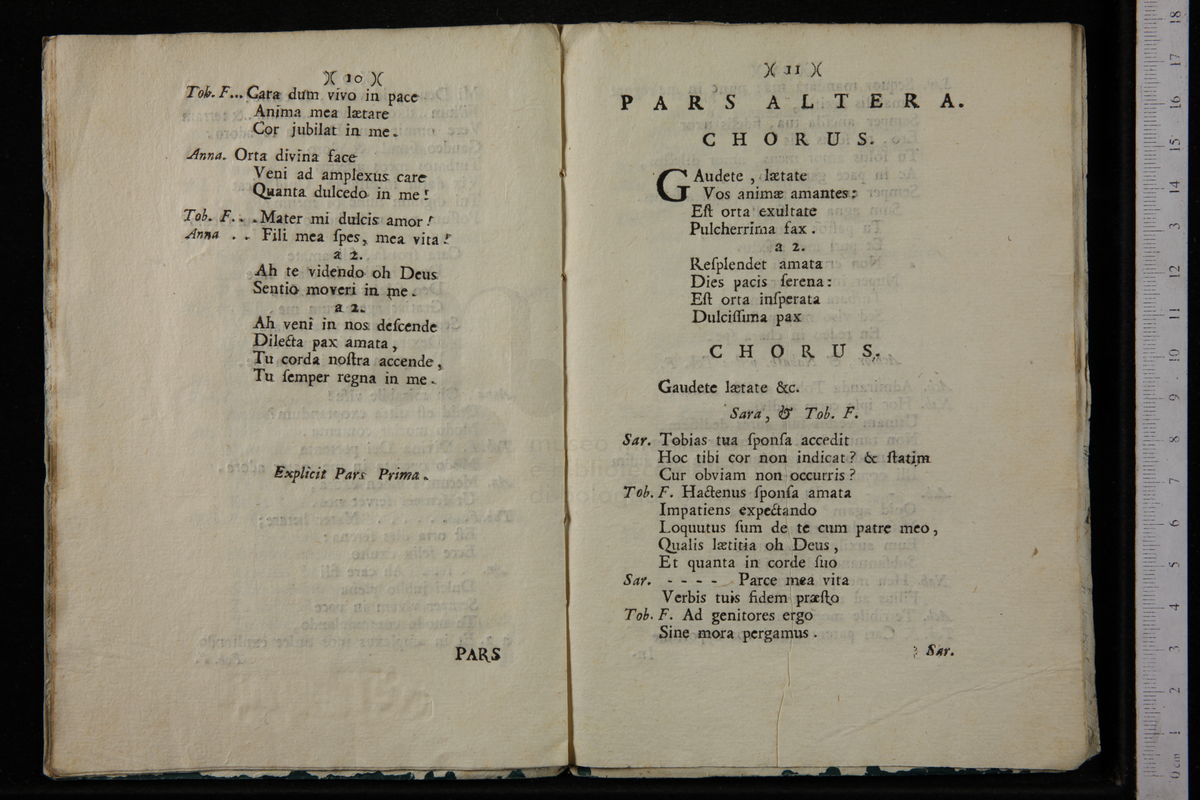 )( 10 )(
Tob. F... Cara dum vivo in pace
Anima mea lætare
Cor jubilat in me.
Anna. Orta divina face
Veni ad amplexus care
Quanta dulcedo in me!
Tob. F. . . Mater mi dulcis amor!
Anna . . Fili mea ſpes, mea vita!
a 2.
Ah te videndo oh Deus
Sentio moveri in me.
a 2.
Ah veni in nos deſcende
Dilecta pax amata,
Tu corda noſtra accende,
Tu ſemper regna in me.
Explicit Pars Prima.
PARS
)( 11 )(
PARS ALTERA.
CHORUS.
GAudete, lætate
Vos animæ amantes:
Eſt orta exultate
Pulcherrima fax.
a 2.
Reſplendet amata
Dies pacis ſerena:
Eſt orta inſperata
Dulciſſima pax
CHORUS.
Gaudete lætate &c.
Sara, & Tob. F.
Sar. Tobias tua ſponſa accedit
Hoc tibi cor non indicat? & ſtatim
Cur obviam non occurris?
Tob. F. Hactenus ſponſa amata
Impatiens expectando
Loquutus ſum de te cum patre meo,
Qualis lætitia oh Deus,
Et quanta in corde ſuo
Sar. - - - - Parce mea vita
Verbis tuis fidem præſto
Tob. F. Ad genitores ergo
Sine mora pergamus.
Sar.
0 cm 1 2 3 4 5 6 7 8 9 10 11 12 13 14 15 16 17 18